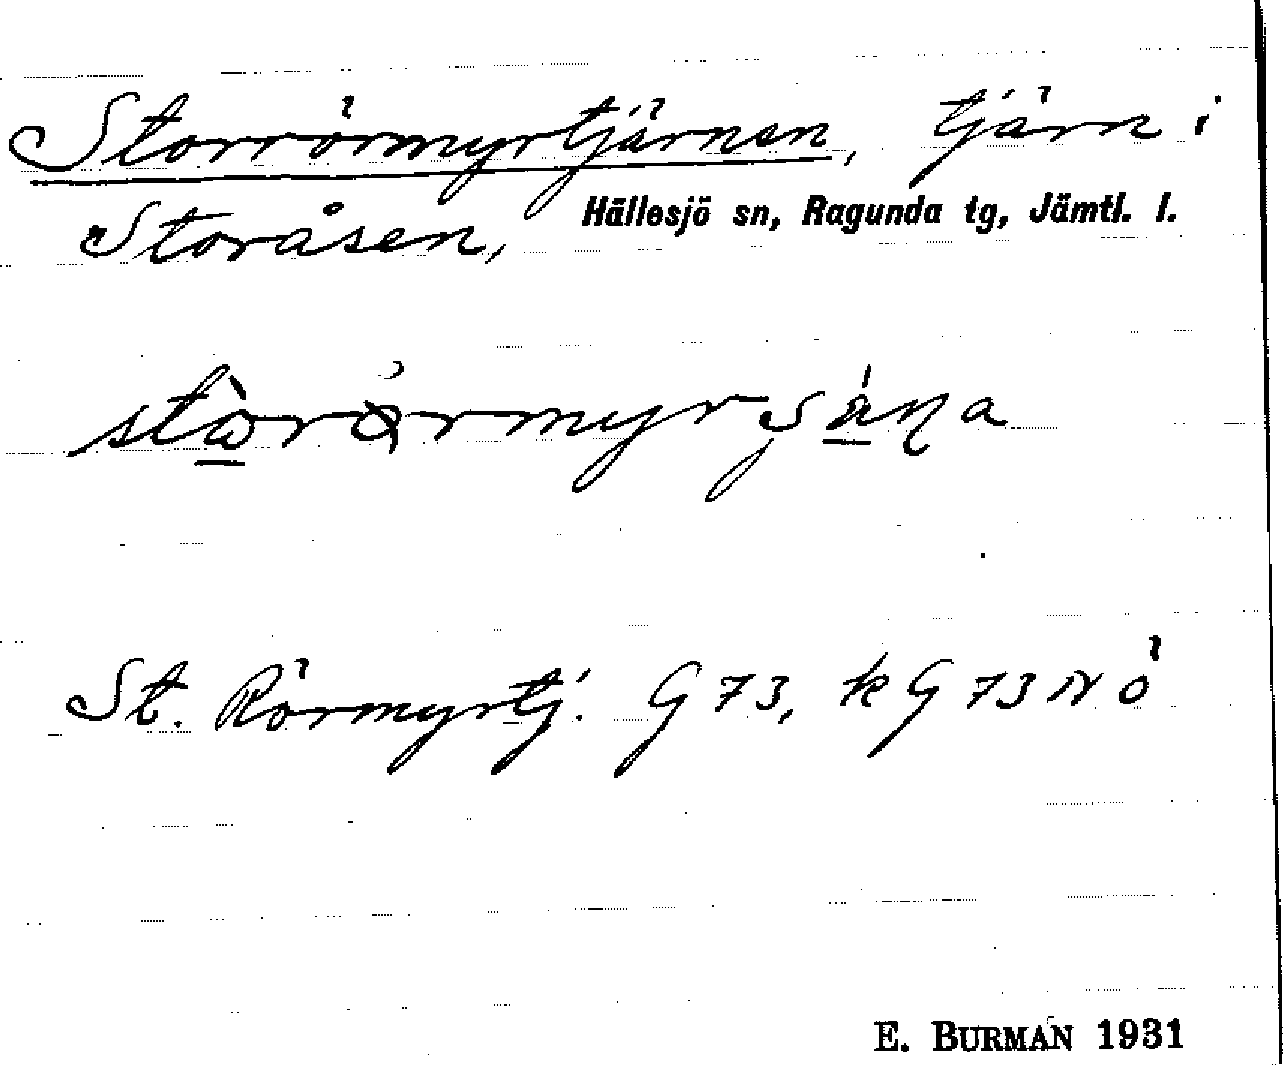 Storrörmyrtjärnen, tjärn i
Storåsen, Hällesjö sn, Ragunda tg, Jämtl. l.
St. Rörmyrtj. G 73, k G 73 N Ö
E. BURMAN 1931